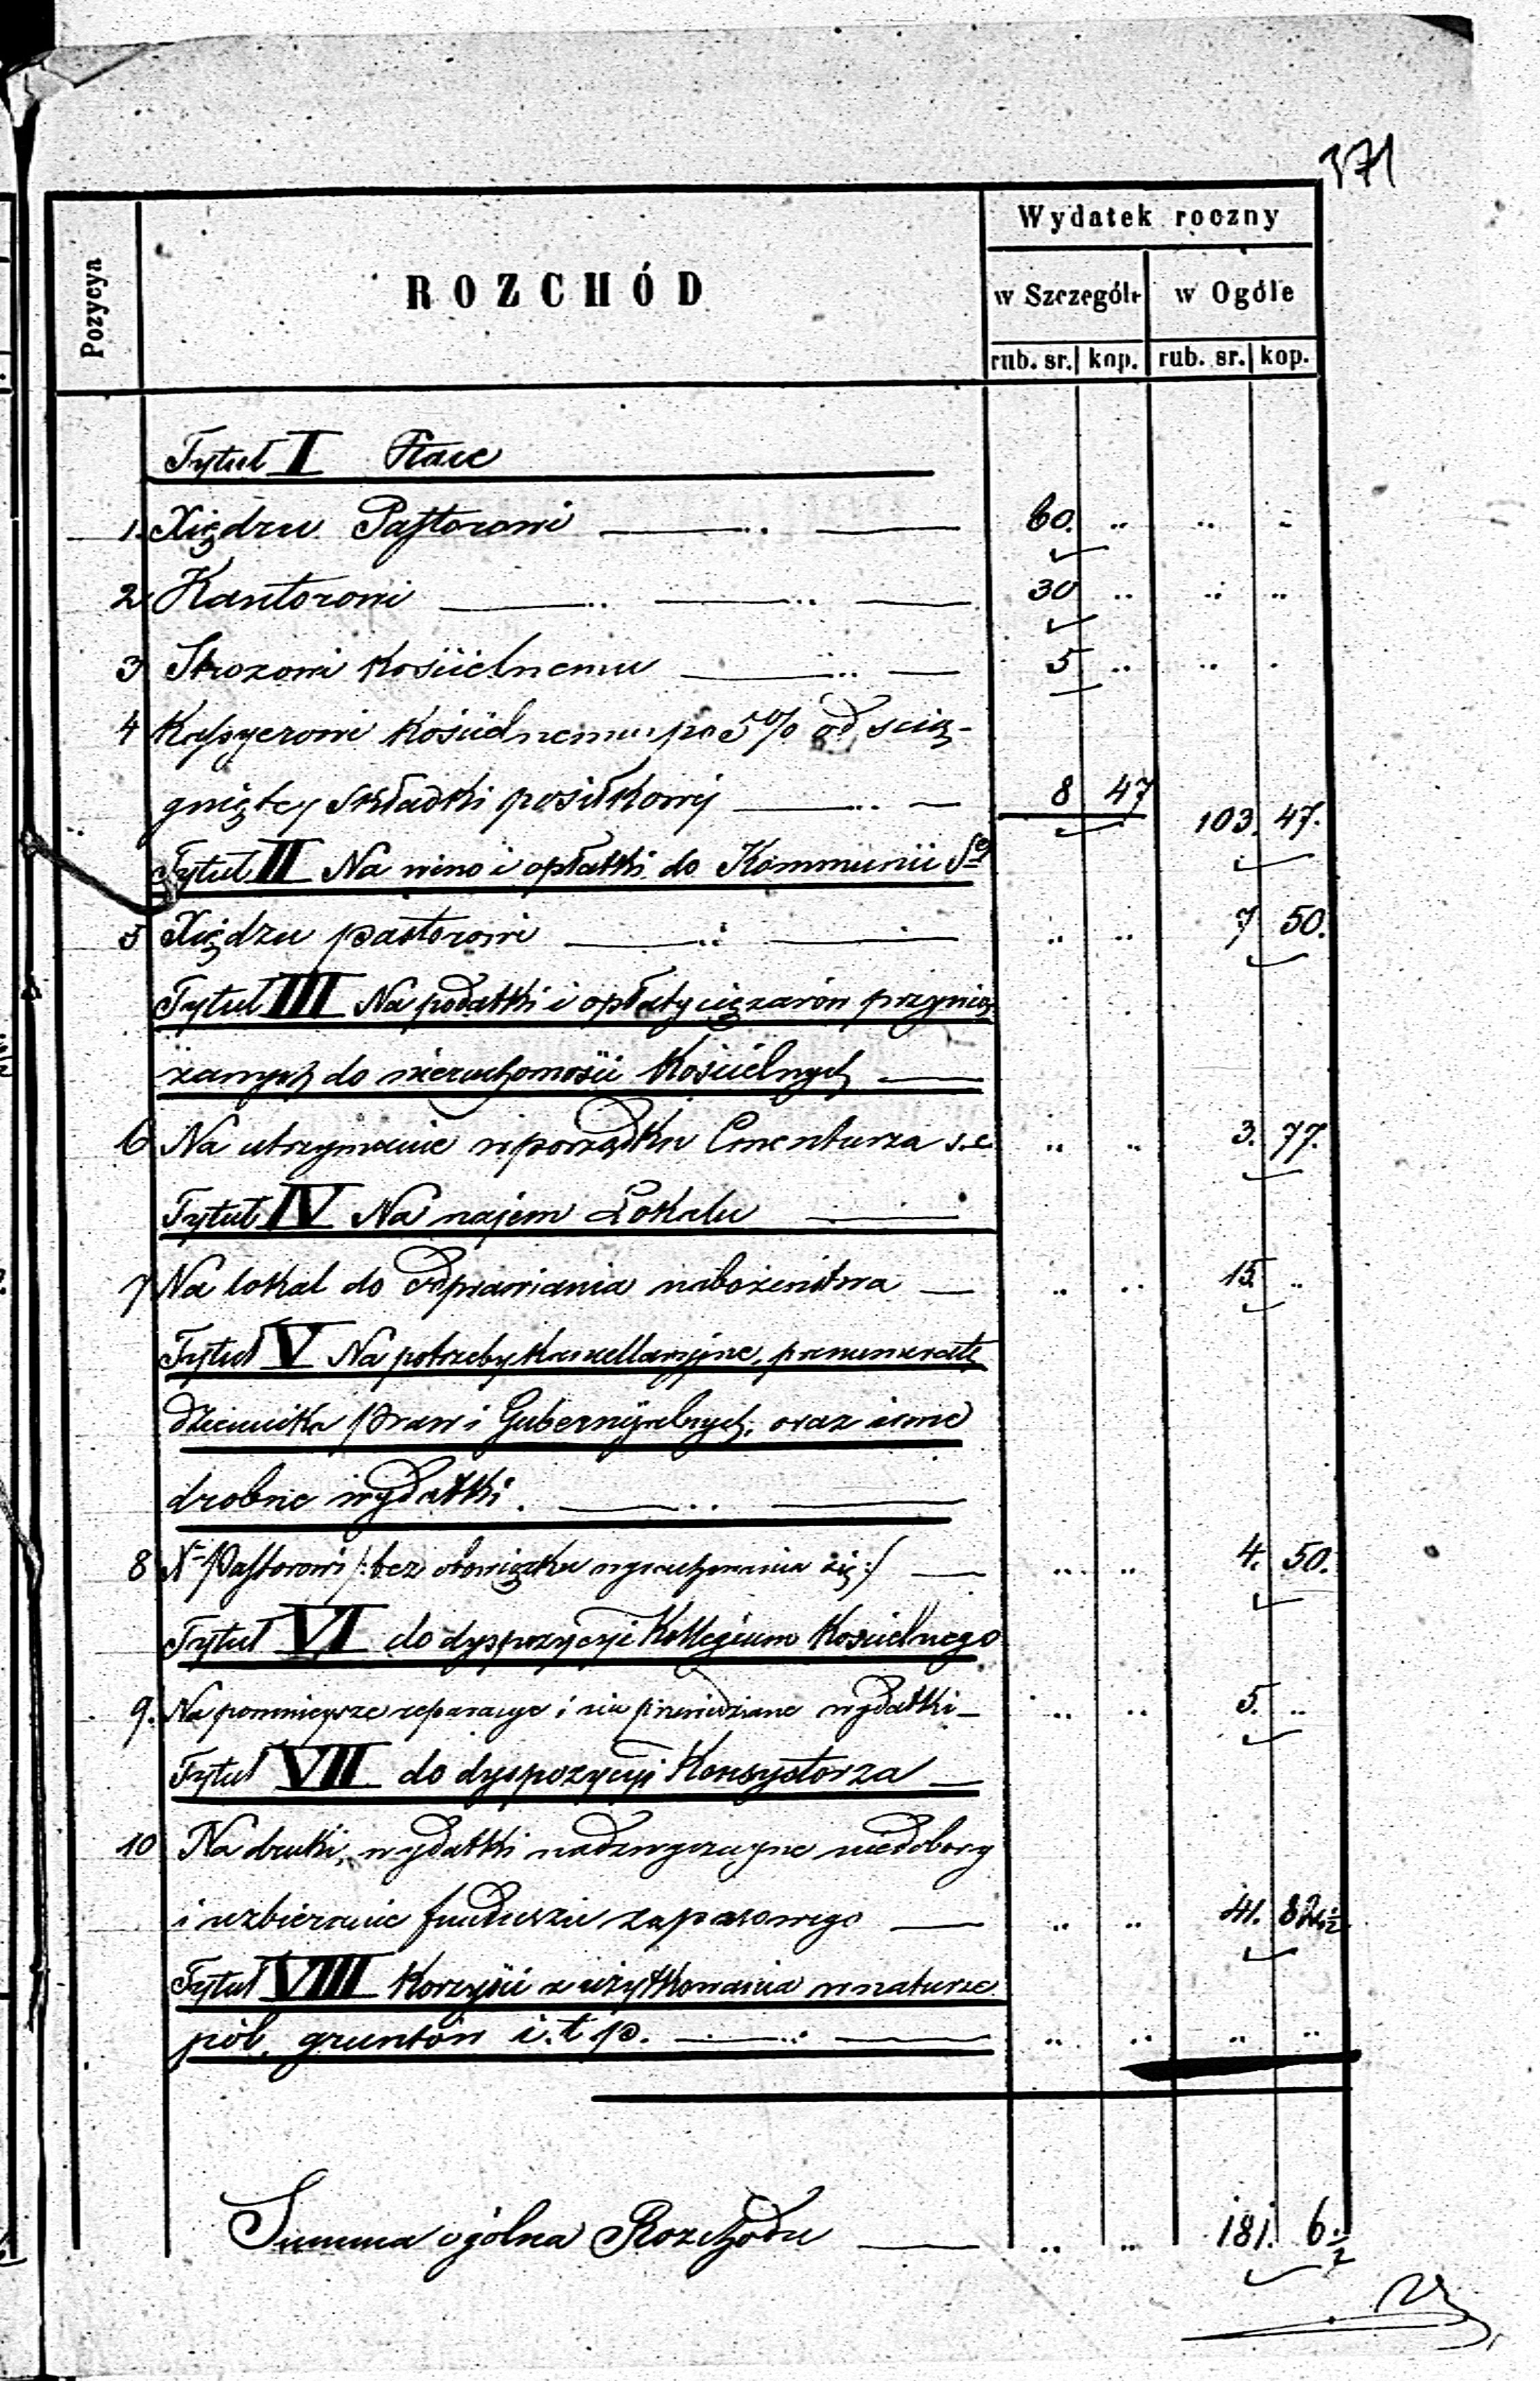 371
Pozycya
ROZCHÓD
Wydatek roczny
w Szczególe w Ogóle
rub. sr. kop. rub. sr. kop.
Tytuł I Płace
1. Xiędzu Pastorowi 60. .. .. ..
2 Kantorowi 30 .. .. ..
3 Strozowi Kościelnemu 5 .. .. .
4 Kassyerowi Kościelnemu po 5% od scią-
gniętej Składki posiłkowej 8 47 103. 47.
Tytuł II Na wino i opłatki do Kommunii Sej
5 Xiędzu pastorowi .. .. 7 50.
Tytuł III Na podatki i opłaty ciężarów przywią
zanych do nieruchomości Kościelnych
6 Na utrzymanie w porządku Cmentarza .. .. 3. 77.
Tytuł IV Na najem Lokalu
7 Na lokal do odprawiania nabożeństwa .. .. 15. ..
Tytuł V Na potrzeby Kancellaryjne, prenumeratę
dziennika praw i Gubernijalnych, oraz inne
drobne wydatki.
8 X. Pastorowi /: bez obowiązku wyrachowania się :/ .. .. 4. 50.
Tytuł VI do dyspozycyi Kollegium Kościelnego
9. Na pomniejsze reparacye i nie przewidziane wydatki .. .. 5. ..
Tytuł VII do dyspozycyi Konsystorza
10 Na druki, wydatki nadzwyczajne niedobory
i uzbieranie funduszu zapasowego .. .. 41. 82 1/2
Tytuł VIII Korzyści z użytkowania w naturze
pól, gruntów i. t p. .. .. .. ..
Summa ogólna Rozchodu .. .. 181. 6 1/2